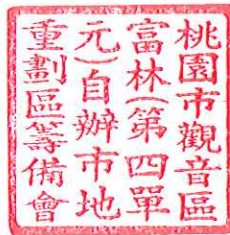 桃園市觀音區
富林(第四單
元)自辦市地
重劃區籌備會